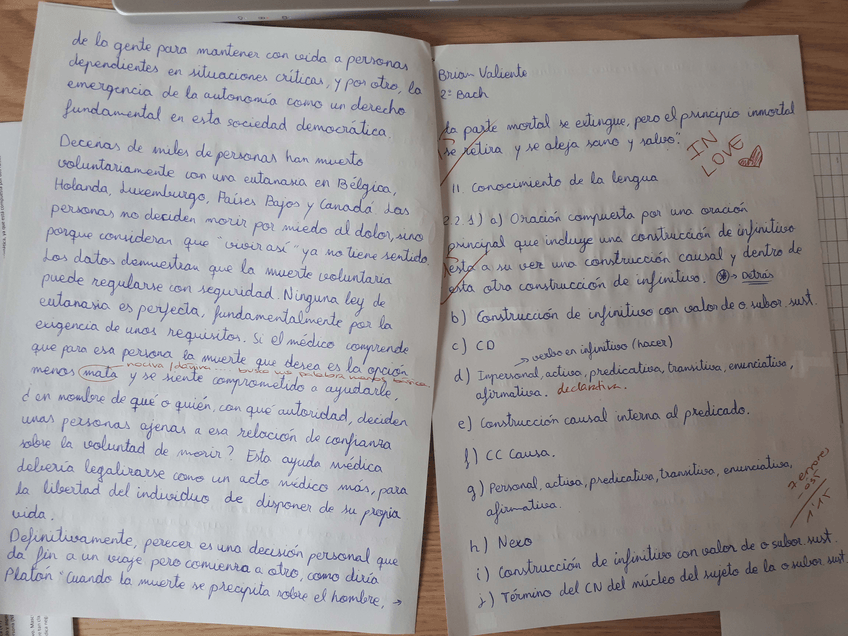 de la gente para mantener con vida a personas
dependientes en situaciones críticas, y por otro, la
emergencia de la autonomía como un derecho
fundamental en esta sociedad democrática.
Decenas de miles de personas han muerto
voluntariamente con una eutanasia en Bélgica,
Holanda, Luxemburgo, Países Bajos y Canadá. Las
personas no deciden morir por miedo al dolor, sino
porque consideran que "vivir así" ya no tiene sentido.
Los datos demuestran que la muerte voluntaria
puede regularse con seguridad. Ninguna ley de
eutanasia es perfecta, fundamentalmente por la
exigencia de unos requisitos. Si el médico comprende
que para esa persona la muerte que desea es la opción
nociva / dañina... busca una palabra menos básica
menos mata y se siente comprometido a ayudarle,
¿en nombre de qué o quién, con qué autoridad, deciden
unas personas ajenas a esa relación de confianza
sobre la voluntad de morir? Esta ayuda médica
debería legalizarse como un acto médico más, para
la libertad del individuo de disponer de su propia
vida.
Definitivamente, perecer es una decisión personal que
da fin a un viaje pero comienza a otro, como diría
Platón "Cuando la muerte se precipita sobre el hombre, →
Brian Valiente
2º Bach
la parte mortal se extingue, pero el principio inmortal
se retira y se aleja sano y salvo".
IN
LOVE
II. Conocimiento de la lengua
2.2.1) a) Oración compuesta por una oración
principal que incluye una construcción de infinitivo
esta a su vez una construcción causal y dentro de
esta otra construcción de infinitivo. * → Detrás
b) Construcción de infinitivo con valor de o subor. sust.
c) CD
→ verbo en infinitivo (hacer)
d) Impersonal, activa, predicativa, transitiva, enunciativa,
afirmativa. declarativa.
e) Construcción causal interna al predicado.
f) CC Causa.
g) Personal, activa, predicativa, transitiva, enunciativa,
afirmativa.
7 errores
h) Nexo
i) Construcción de infinitivo con valor de o subor. sust.
j) Término del CN del núcleo del sujeto de la o subor. sust.